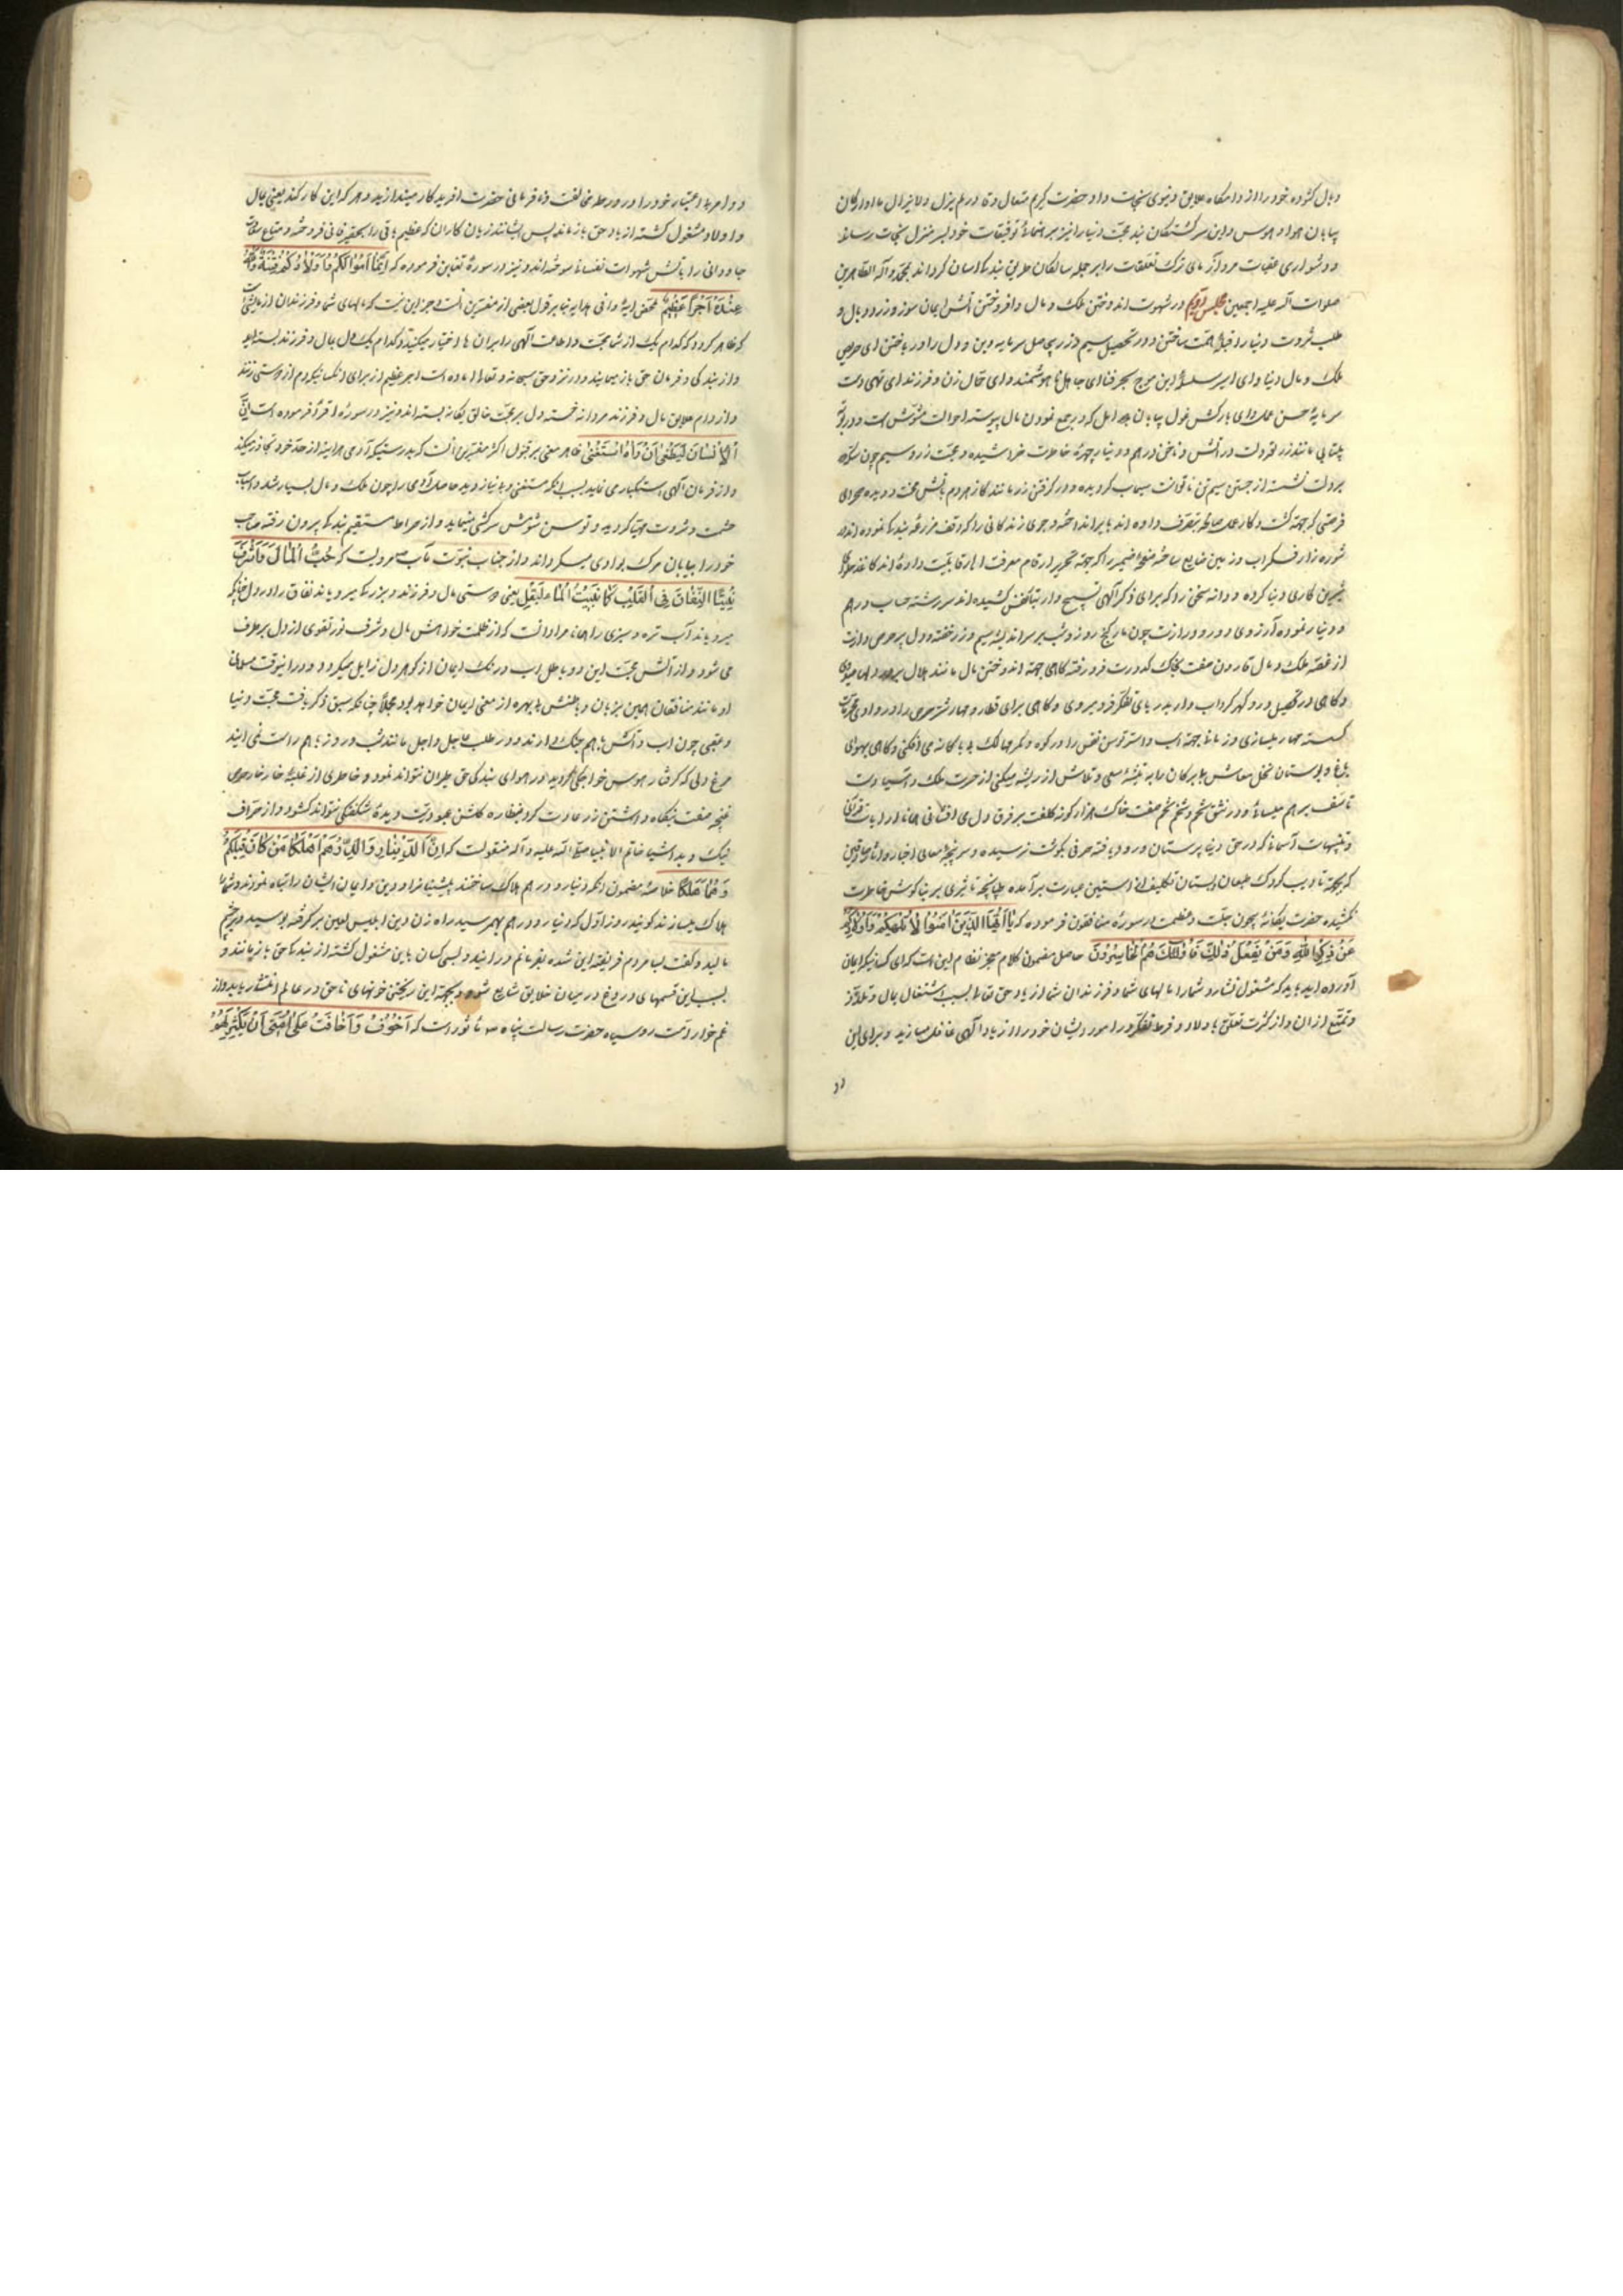 وبال کشوده خود را از دامگاه علایق دنیوی نجات داد حضرت کریم متعال وقادر لم یزل ولایزال ما آوارگان
بیابان هوا و هوس و این سرگشتگان تیه محبّت دنیا را نیز برهنمائی توفیقات خود بسر منزل نجات رساند
ودشواری عقبات مرد آزمای ترک تعلقات را بر جمله سالکان طریق بندگی آسان کرداند بمحمّد وآله الطاهرین
صلوات الله علیه اجمعین مجلس در شهوت اندوختن ملک و مال وافروختن آتش ایمان سوز وزر و وبال و
طلب ثروت دنیا را قبله همت ساختن ودر تحصیل سیم وزر بیحاصل سرمایه دین و دل را در باختن ای حریص
ملک و مال دنیا و ای اسیر سلسله این موج بحر فنا ای جاهل نا هوشمند و ای حمال زن و فرزند ای تهی دست
سرمایه حسن عمل وای بارکش غول بیابان امل که در جمع نمودن مال پیوسته احوالت مشوّش است و در
بیتابی مانند زر قردلت در آتش و ناخن درهم و دینار چهره خاطرت خراشیده و محبّت زر و سیم چون سکه
بر دلت نشسته از جستن سیم تن ناتوانت سیماب گردیده و در گرفتن زر مانند گاز مردم
فرصتی که جهته کشت و کار عمل صالح بتصرف داده اند
شوره زار فکر آب و زمین ضایع ساخته صفحه ضمیر را که جهته تحریر ارقام معرفت الهی قابلیت داده اند
شیرین کاری دنیا کرده و دانه سخن را که برای ذکر الهی تسبیح وار بتار نفس کشیده اند سررشته حساب درهم
و دینار نموده آرزوی دور و درازت چون مار گنج روز وشب بر سر اندیشه سیم و زر خفته و دل پر حرص و آزت
از غصه ملک و مال قارون صفت بخاک کدورت فرو رفته کاهی جهته اندوختن مال مانند هلال
وکاهی در تحصیل در و گهر گرداب وار بدریای تفکر فرو میروی وکاهی برای قطار و مهار شتر حرص را در وادی
کسسته مهار میسازی و زمانا جهته اسب و استر توسن نفس را در کوه و کمر مهالک بی باکانه می افکنی وکاهی بهوای
باغ و بوستان نخل معاش بیبرکان را به تیشه سعی و تلاش از ریشه میکنی از حسرت ملک و آسیا دست
تأسف بر هم میسائی و در عشق تخم و شخم تخم صفت خاک هزار کونه کلفت بر فرق دل می افشانی همانا از آیات قرآنی
وتنبیهات آسمانی که در حق دنیا پرستان ورود یافته حرفی بکوشت نرسیده و سرپنجه معانی اخبار
که بجهته تادیب کودک طبعان دبستان تکلیف از آستین عبارت بر آمده طپانچه تاثیری بر بناکوش خاطرت
نکشیده حضرت یکانهٔ بیچون جلّت عظمته در سورهٔ منافقون فرموده که یَا اَیُّهَا الَّذِیْنَ اٰمَنُوا لاٰ تُلْهِکُمْ
عَنْ ذِکْرِ اللّٰهِ وَمَنْ یَفْعَلْ ذٰلِکَ فَاُولٰئِکَ هُمُ الْخٰاسِرُوْنَ حاصل مضمون کلام معجز نظام این است که ای کسانیکه ایمان
آورده اید باید که مشغول نسازد شما را مالهای شما و فرزندان شما از یاد حق تعالی بسبب اشتغال بمال و تلذّذ
و تمتّع از ان واز کثرت تعلق باولاد و فرط تفکر در امور ایشان خود را از یاد الهی غافل مسازید و برای این
دو
دو امر بی اعتبار خود را در ورطه مخالفت و نا فرمانی حضرت افریدکار میندازید و هر که این کار کند یعنی بمال
و اولاد مشغول کشته از یاد حق باز ماند پس ایشانند زیان کاران که عظیم باقی را بحقیر فانی فروخته و متاع
جاودانی را باتش شهوات نفسانی سوخته اند و نیز در سورهٔ تغابن فرموده که اِنَّمٰا اَمْوٰالُکُمْ وَاَوْلاٰدُکُمْ فِتْنَةٌ وَاللّٰهُ
عِنْدَهُ اَجْرٌ عَظِیْمٌ محصل ایهٔ وافی هدایه بنا بر قول بعضی از مفسّرین انست که جز این نیست که مالهای شما و فرزندان شما آزمایشی است
که ظاهر کردد که کدام یک از شما محبّت و اطاعت الهی را بر ان ها اختیار میکنید و کدام یک دل بمال و فرزند بسته اید
و از بندکی و فرمان حق باز میمانید و در نزد حق سبحانه و تعالی اماده است اجر عظیم از برای انکسانیکه دم از دوستی زنند
و از دام علایق مال و فرزند مردانه جسته دل بر محبّت خالق یکانه بسته اند و نیز در سورهٔ اقرأ فرموده است اِنَّ
الْاِنْسٰانَ لَیَطْغٰی اَنْ رَاٰهُ اسْتَغْنٰی ظاهر معنی بر قول اکثر مفسّرین انست که بدرستیکه آدمی هر اینه از حدّ خود تجاوز میکند
و از فرمان الهی استکباری نماید بسبب انکه مستغنی و بی نیاز و دید حاصل آدمی را چون ملک و مال بسیار شد و اسباب
حشمت و ثروت مهیّا کردید توسن نفسش سرکشی مینماید و از صراط مستقیم بندکی بیرون رفته صاحب
خود را بیابان مرک بوادی میکرداند و از جناب نبوّت مآب مرویست که حُبُّ الْمٰالِ وَالشَّرَفِ
یُنْبِتٰانِ النِّفٰاقَ فِی الْقَلْبِ کَمٰا یُنْبِتُ الْمٰاءُ الْبَقْلَ یعنی دوستی مال و فرزند و بزرکی میرویاند نفاق را در دل چنانکه
میرویاند آب تره و سبزی را همانا مراد انست که از ظلمت خواهش مال و شرف نور تقوی از دل بر طرف
می شود و از آتش محبّت این دو باطل اب و رنک ایمان از کوهر دل زایل میکردد و در اینوقت مسلمانی
او مانند منافقان همین بزبان و باطنش بی بهره از معنی ایمان خواهد بود مجملاً چنانکه سبق ذکر یافت محبّت دنیا
و عقبی چون اب و آتش با هم جنک دارند و در طلب عاجل و اجل مانند شب و روز با هم راست نمی ایند
مرغ دلی که گرفتار هوس خواجکی کردید در هوای بندکی حق طیران نتواند نمود و خاطری از غلبهٔ خار خار حرص
غنچه صفت بنکاه داشتن زر عادت کرد بنظاره کلشن عبودیّت دیدهٔ شکفتکی نتواند کشود و از صرّاف
نیک و بد اشیا خاتم الانبیا صلّی الله علیه و آله منقولست که اِنَّ الدِّیْنٰارَ وَالدِّرْهَمَ اَهْلَکٰا مَنْ کٰانَ قَبْلَکُمْ
وَهُمٰا مُهْلِکٰا خلاصهٔ مضمون انکه دنیار و درهم هلاک ساختند پیشینیانرا و دین و ایمان ایشان را تباه نمودند و شما را
هلاک میسازند کویند روز اوّل که دنیار و درهم بهم رسید راه زن دین ابلیس لعین بر کرفته بوسید و بر چشم
مالید و کفت بسا مردم فریفته این شده بفرمانم در ایند و بسی کسان باین مشغول کشته از بندکی حق باز مانند و
بسبب این قسمهای دروغ در میان خلایق شایع شود و بجهته این ریختن خونهای ناحق در عالم انتشار یابد و از
غم خوار امّت روسیاه حضرت رسالت پناه ص ماثور است که اَخْوَفُ مٰا اَخٰافُ عَلیٰ اُمَّتِی اَنْ یَکْثُرَ لَهُمُ